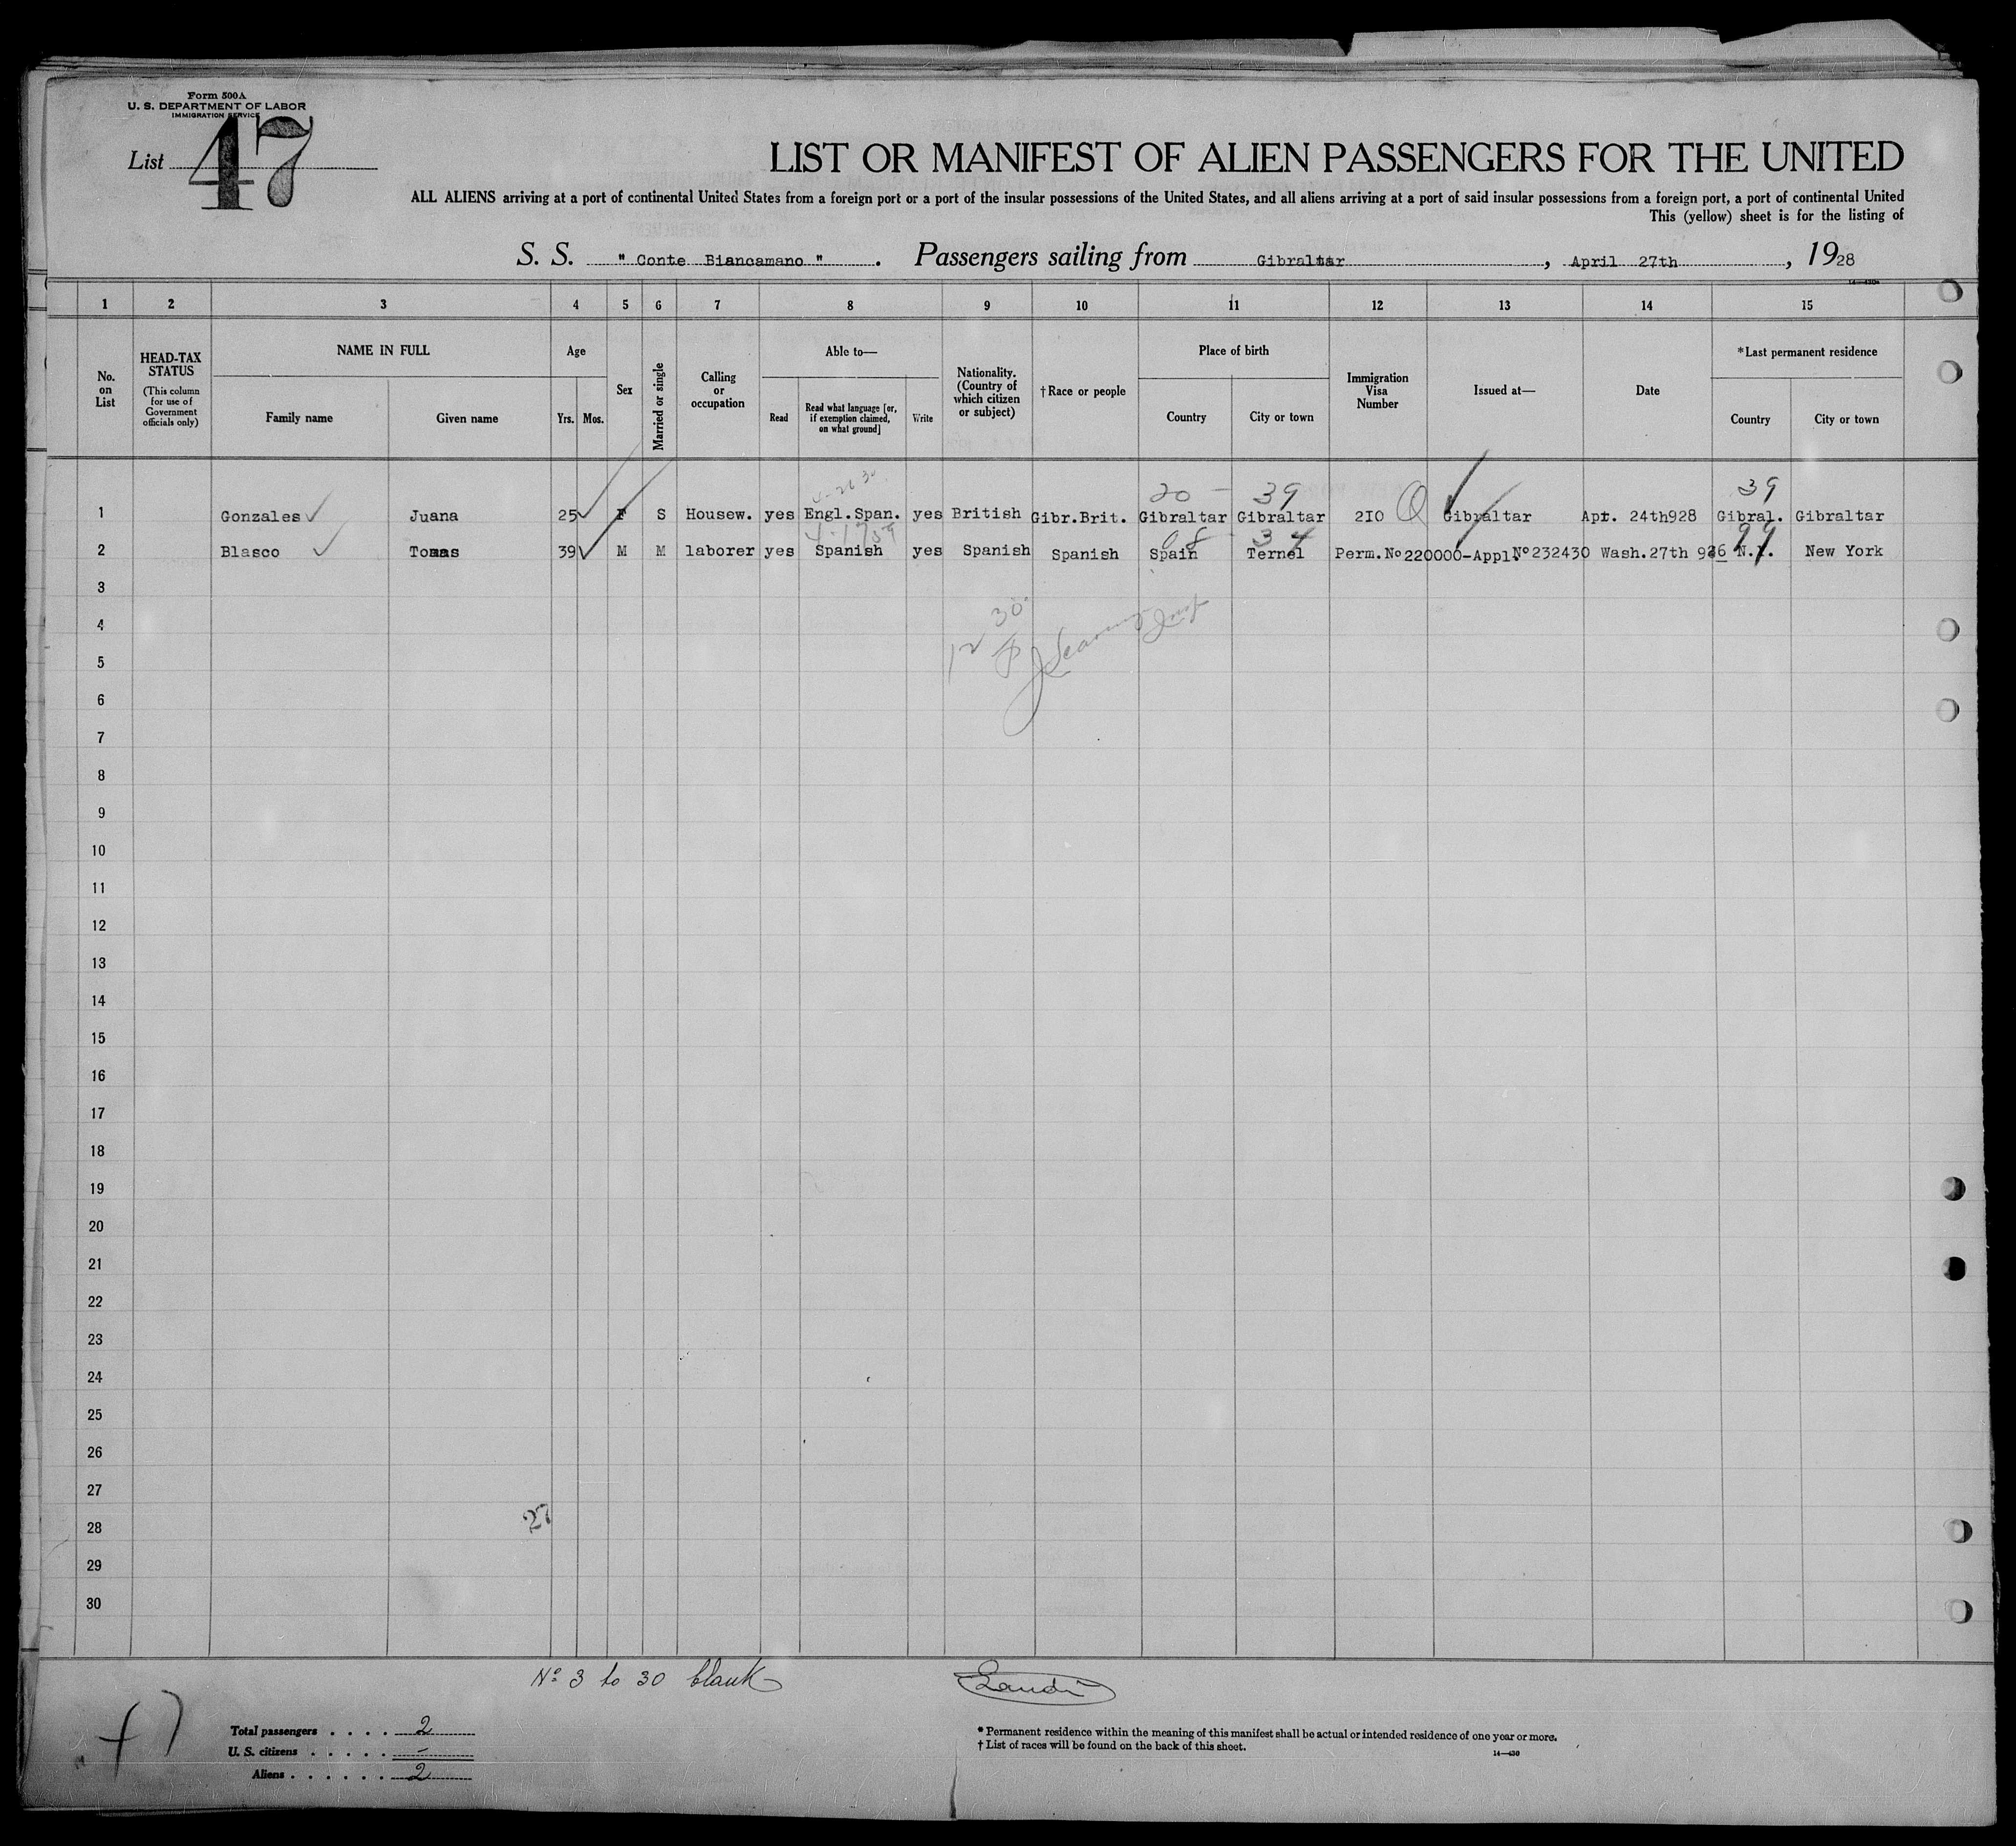 Form 500A
U. S. DEPARTMENT OF LABOR
IMMIGRATION SERVICE
List 47
LIST OR MANIFEST OF ALIEN PASSENGERS FOR THE UNITED
ALL ALIENS arriving at a port of continental United States from a foreign port or a port of the insular possessions of the United States, and all aliens arriving at a port of said insular possessions from a foreign port, a port of continental United
This (yellow) sheet is for the listing of
S. S. " Conte Biancamano ". Passengers sailing from Gibraltar, April 27th, 1928
14—430a
1 2 3 4 5 6 7 8 9 10 11 12 13 14 15
No. on List
HEAD-TAX STATUS (This column for use of Government officials only)
NAME IN FULL
Family name Given name
Age
Yrs. Mos.
Sex
Married or single
Calling or occupation
Able to—
Read
Read what language [or, if exemption claimed, on what ground]
Write
Nationality. (Country of which citizen or subject)
†Race or people
Place of birth
Country City or town
Immigration Visa Number
Issued at—
Date
*Last permanent residence
Country City or town
4-26 30
20 - 39 39
1 Gonzales Juana 25 F S Housew. yes Engl.Span. yes British Gibr.Brit. Gibraltar Gibraltar 2I0 Q Gibraltar Apr. 24th928 Gibral. Gibraltar
2 Blasco Tomas 39 M M laborer yes Spanish yes Spanish Spanish Spain Ternel Perm.No220000-Appl.No232430 Wash.27th 926 N.Y. New York
99
3
4
5
6
7
8
9
10
11
12
13
14
15
16
17
18
19
20
21
22
23
24
25
26
27
28
29
30
12 30
27
No 3 to 30 blank
47
Total passengers . . . . 2
U. S. citizens . . . . . -
Aliens . . . . . . 2
* Permanent residence within the meaning of this manifest shall be actual or intended residence of one year or more.
† List of races will be found on the back of this sheet.
14—430